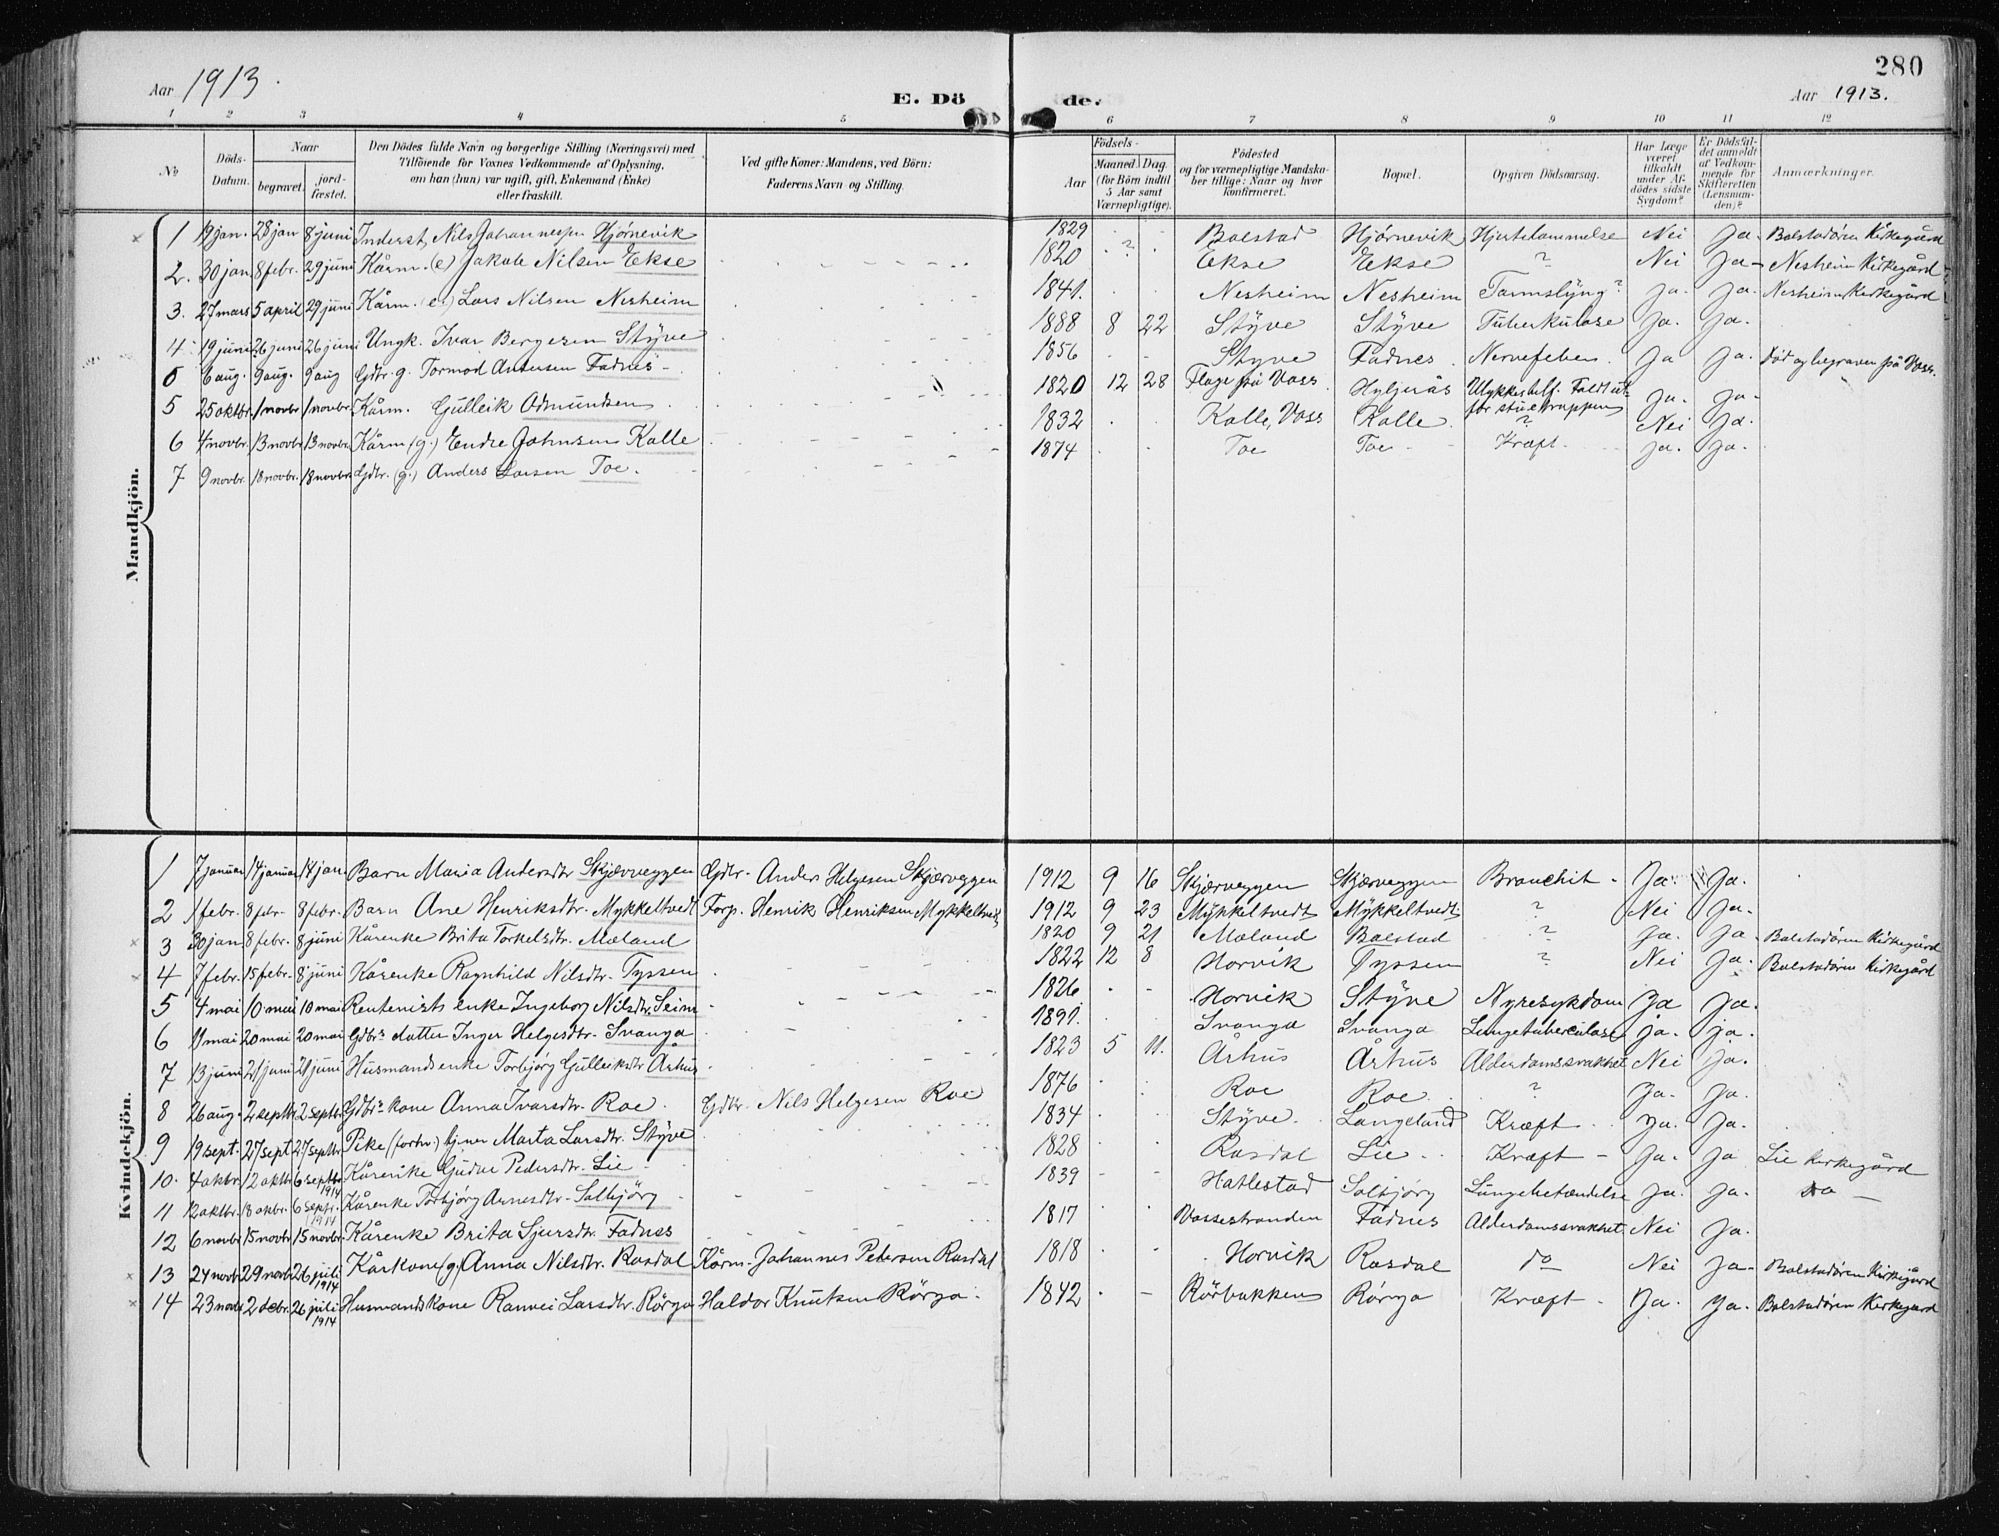 280
Aar 1913.
E. Döde.
Aar 1913.
1 2 3 4 5 6 7 8 9 10 11 12
No
Döds-Datum.
Naar
begravet.
jordfæstet.
Den Dödes fulde Navn og borgerlige Stilling (Næringsvei) med
Tilföiende for Voxnes Vedkommende af Oplysning,
om han (hun) var ugift, gift, Enkemand (Enke)
eller fraskilt.
Ved gifte Koner: Mandens, ved Börn:
Faderens Navn og Stilling.
Födsels-
Aar
Maaned. Dag.
(for Börn indtil
5 Aar samt
Værnepligtige).
Födested
og for værnepligtige Mandskaber tillige: Naar og hvor
konfirmeret.
Bopæl.
Opgiven Dödsaarsag.
Har Læge
været
tilkaldt
under Afdödes sidste
Sygdom?
Er Dödsfaldet anmeldt
af Vedkommende for
Skifteretten
(Lensmanden)?
Anmærkninger.
Mandkjön.
1 19 jan. 28 jan 8 juni Inderst Nils Johannesen Hjørnevik 1829 Bolstad Hjørnevik Hjertelammelse Nei Ja Bolstadøren Kirkegård
2. 30 jan 8 febr. 29 juni Kårm. (e) Jakob Nilsen Ekse 1820 ? Ekse Ekse ? Nei Ja Nesheim Kirkegård
3. 27 mars 5 april 29 juni Kårm. (e) Lars Nilsen Nesheim 1841. Nesheim Nesheim Tarmslyng? Ja. Ja. Nesheim Kirkegård
4 19 juni 26 juni 26 juni Ungk. Ivar Bergesen Styve 1888 8 22 Styve Styve Tuberkulose Ja. Ja.
5 6 aug. 9 aug. 9 aug Gdbr. g. Tormod Fadnes 1856 Styve Fadnes Nervefeber. Ja Ja. Død og begraven på Voss.
5 25 oktbr. 1 novbr. 1 novbr. Kårm. Gulleik Odmundsen 1820 12 28 Flage på Voss Ulykkestilf. Faldt utfor stuetrappen Ja. Ja
6 4 novbr. 13 novbr. 13 novbr. Kårm (g.) Endre Johnsen Kolle 1832 Kolle, Voss Kolle. ? Nei Ja.
7 9 novbr. 18 novbr. 18 novbr. Gdbr. (g.) Anders Larsen Toe. 1874 Toe Toe Kræft Ja. Ja.
Kvindekjön.
1 7 januar 14 januar 14 jan. Barn Maria Andersdtr Skjerveggen Gdbr. Anders Helgesen Skjerveggen 1912 9 16 Skjerveggen Skjerveggen Bronchit Ja. Ja.
2 1 febr. 8 febr. 8 febr. Barn Ane Henriksdtr. Mykkeltvedt Forp. Henrik Henriksen Mykkeltvedt 1912 9 23 Mykkeltvedt Mykkeltvedt ? Nei Ja.
3 30 jan 8 febr. 8 juni Kårenke Brita Torkelsdtr. Mæland 1820 9 21 Mæland Bolstad ? Ja. Ja Bolstadøren Kirkegård
4 7 febr. 15 febr. 8 juni Kårenke Ragnhild Nilsdtr. Tyssen 1822 12 8 Horvik Tyssen ? Nei Ja. Bolstadøren Kirkegård
5 4 mai 10 mai 10 mai Rentenists enke Ingeborg Nilsdtr. Seim 1826 Horvik Styve Nyresykdom Ja Ja.
6 11 mai 20 mai 20 mai Gdbrs datter Inger Helgesdtr. Svanga 1891. Svanga Svanga Lungetuberculose Ja. Ja.
7 13 juni 21 juni 21 juni Husmandsenke Torbjørg Gulleiksdtr Århus 1823 5 11. Århus Århus Alderdomssvakhet Nei Ja.
8 26 aug. 2 septbr 2 septbr Gdbrs kone Anna Ivarsdtr. Roe. Gdbr. Nils Helgesen Roe 1876 Roe Roe. ? Ja. Ja.
9 19 sept. 27 sept 27 septbr Pike (forhv.) tjener Marta Larsdtr. Styve 1834 Styve. Langeland Kræft. Ja. Ja.
10. 4 oktbr 12 oktbr 6 septbr 1914 Kårenke Gudve Pedersdtr. Lie 1828 Rasdal Lie. Kræft Ja. Ja Lie Kirkegård
11 12 oktbr. 18 okbr. 6 septbr. 1914 Kårenke Torbjørg Arnesdtr. Solbjørg 1839 Hatlestad Solbjørg Lungebetændelse Ja. Ja. Do
12 6 novbr 15 novbr 15 novbr. Kårenke Brita Sjursdtr. Fadnes 1817 Vossestranden Fadnes Alderdomssvakhet Nei Ja.
13 24 novbr 29 novbr 26 juli 1914 Kårkone (g.) Anna Nilsdtr. Rasdal Kårm. Johannes Petersen Rasdal 1818 Horvik Rasdal do Nei Ja Bolstadøren Kirkegård
14 23 novbr 2 debr. 26 juli 1914 Husmandskone Ranvei Larsdtr. Rørgo Haldor Knutsen Rørgo 1842 Rörbakken Rørgo Kræft Ja. Ja. Bolstadøren Kirkegård